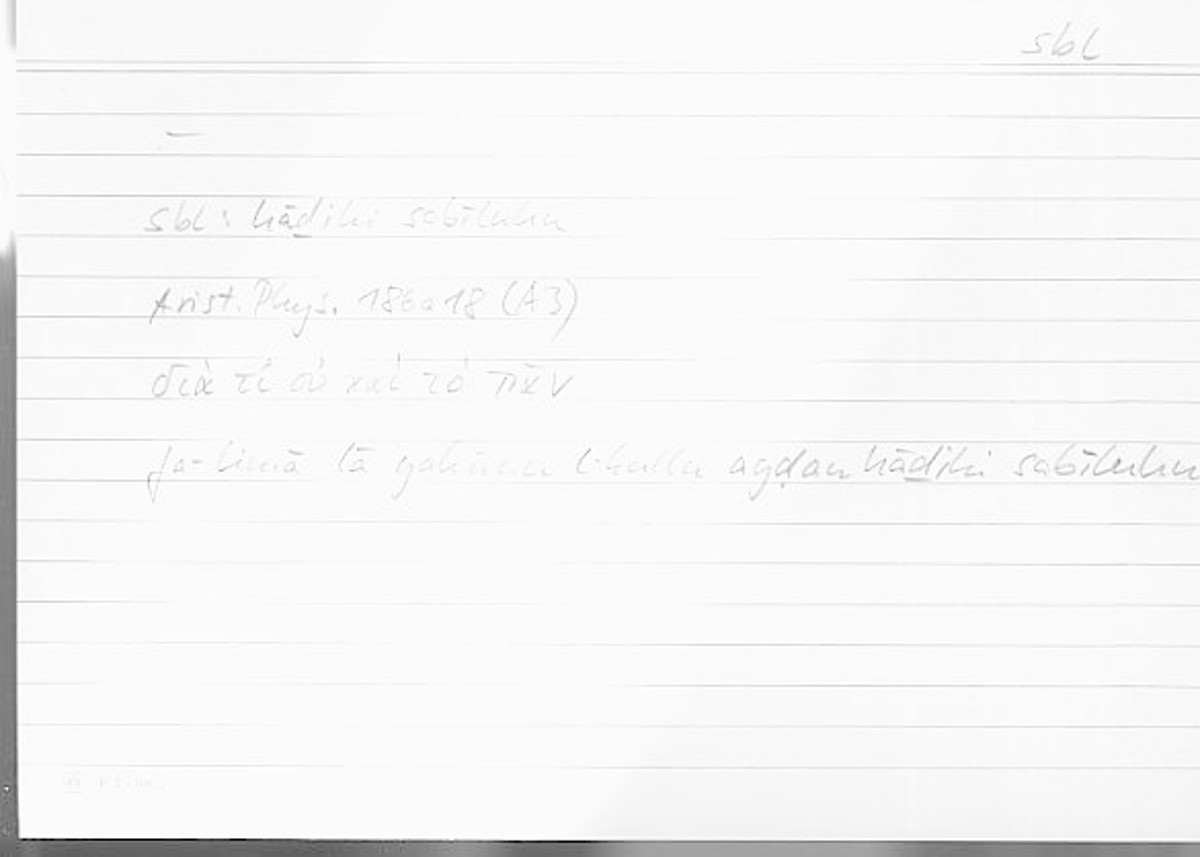 sbl
sbl: hāḏihi sabīluhu
Arist. Phys. 186a18 (A3)
διὰ τί οὐ καὶ τὸ πᾶν
fa-limā lā yakūnu l-kullu ayḍan hāḏihi sabīluhu